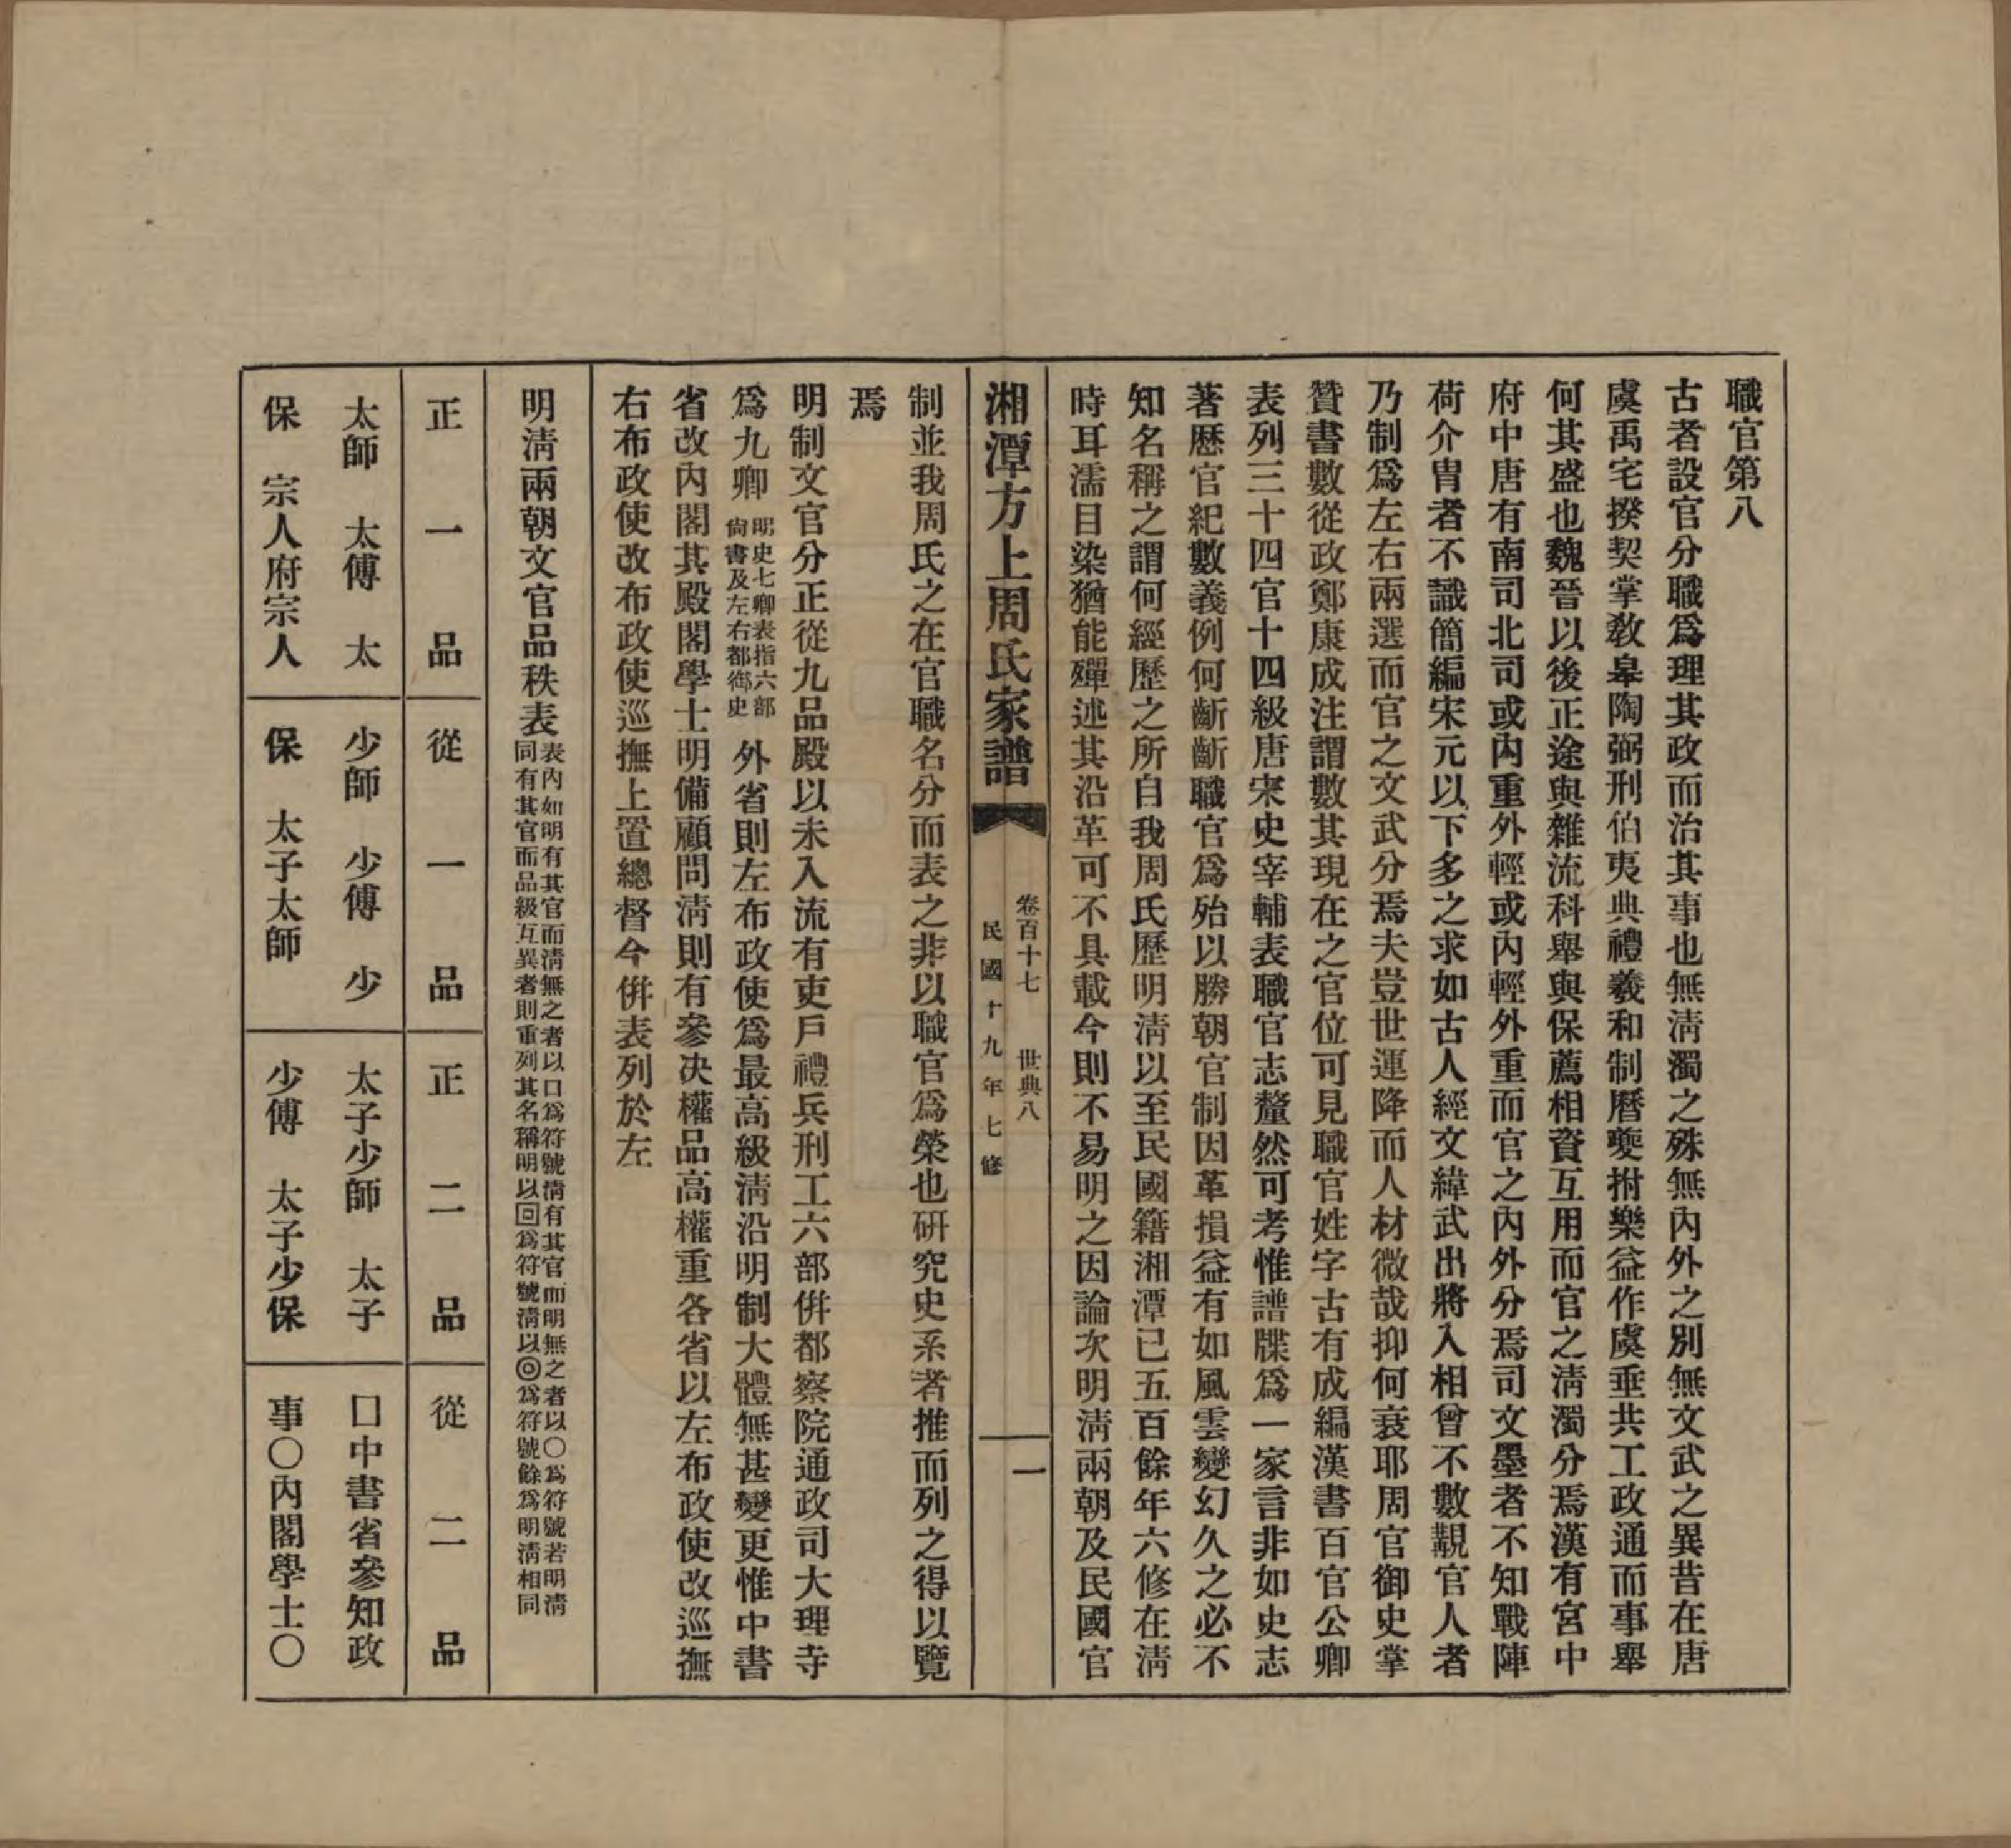 職官第八
古者設官分職爲理其政而治其事也無淸濁之殊無內外之別無文武之異昔在唐
虞禹宅揆契掌敎皋陶弼刑伯夷典禮羲和制曆夔拊樂益作虞垂共工政通而事舉
何其盛也魏晉以後正途與雜流科舉與保薦相資互用而官之淸濁分焉漢有宮中
府中唐有南司北司或內重外輕或內輕外重而官之內外分焉司文墨者不知戰陣
荷介冑者不識簡編宋元以下多之求如古人經文緯武出將入相曾不數覯官人者
乃制爲左右兩選而官之文武分焉夫豈世運降而人材微哉抑何衰耶周官御史掌
贊書數從政鄭康成注謂數其現在之官位可見職官姓字古有成編漢書百官公卿
表列三十四官十四級唐宋史宰輔表職官志釐然可考惟譜牒爲一家言非如史志
著歷官紀數義例何齗齗職官爲殆以勝朝官制因革損益有如風雲變幻久之必不
知名稱之謂何經歷之所自我周氏歷明淸以至民國籍湘潭已五百餘年六修在淸
時耳濡目染猶能殫述其沿革可不具載今則不易明之因論次明淸兩朝及民國官
湘潭方上周氏家譜
卷百十七 世典八
民國十九年七修
一
制並我周氏之在官職名分而表之非以職官爲榮也研究史系者推而列之得以覽
焉
明制文官分正從九品殿以未入流有吏戶禮兵刑工六部併都察院通政司大理寺
爲九卿
明史七卿表指六部
尙書及左右都御史
外省則左布政使爲最高級淸沿明制大體無甚變更惟中書
省改內閣其殿閣學士明備顧問淸則有參決權品高權重各省以左布政使改巡撫
右布政使改布政使巡撫上置總督今併表列於左
明淸兩朝文官品秩表
表內如明有其官而淸無之者以口爲符號淸有其官而明無之者以〇爲符號若明淸
同有其官而品級互異者則重列其名稱明以回爲符號淸以◎爲符號餘爲明淸相同
正一品
從一品
正二品
從二品
太師 太傅 太
保 宗人府宗人
少師 少傅 少
保 太子太師
太子少師 太子
少傅 太子少保
口中書省參知政
事〇內閣學士〇